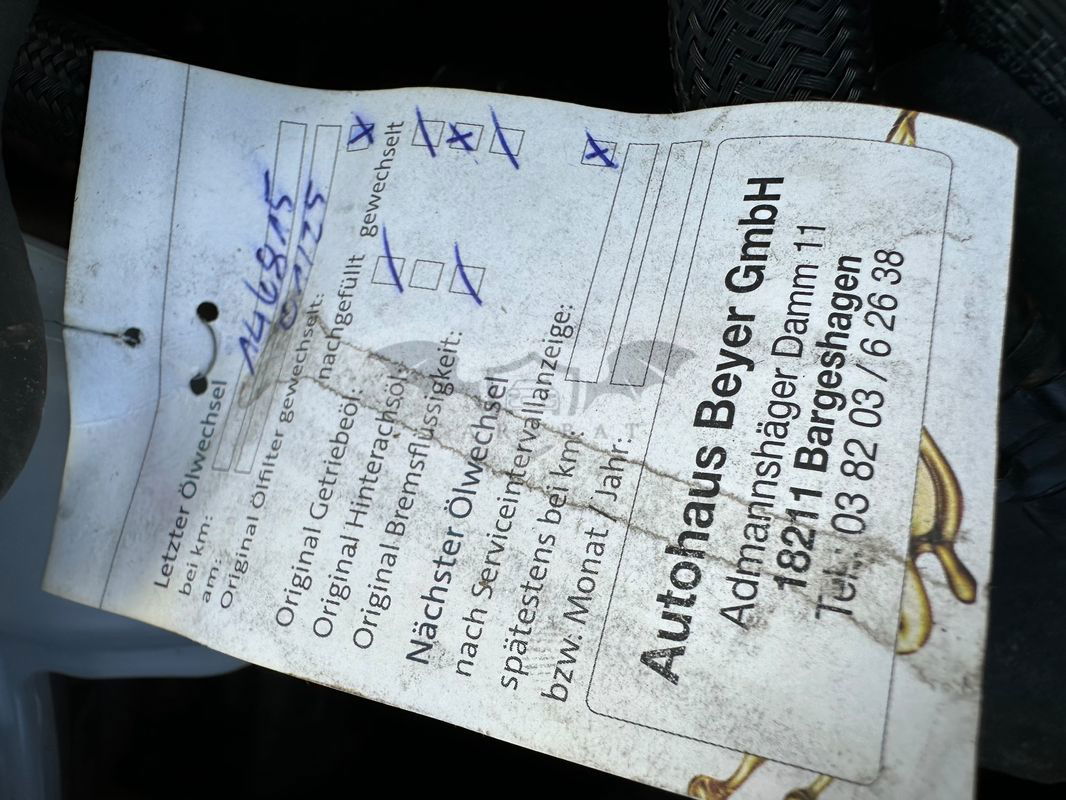 Letzter Ölwechsel
bei km: 146815
am: 01/25
Original Ölfilter gewechselt: X
nachgefüllt gewechselt
Original Getriebeöl: / /
Original Hinterachsöl: X
Original Bremsflüssigkeit: / /
Nächster Ölwechsel
nach Serviceintervallanzeige: X
spätestens bei km:
bzw. Monat / Jahr:
Autohaus Beyer GmbH
Admannshäger Damm 11
18211 Bargeshagen
Tel.: 03 82 03 / 6 26 38